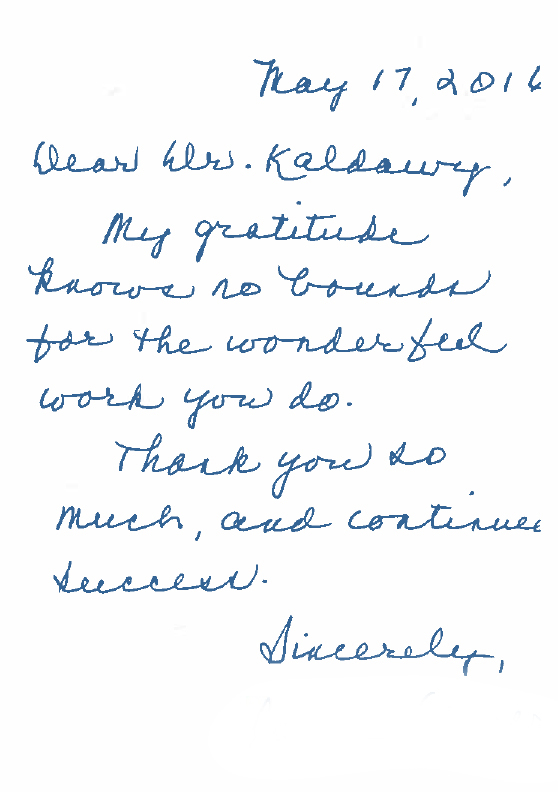 May 17, 2016
Dear Dr. Kaldawy,
My gratitude
knows no bounds
for the wonderful
work you do.
Thank you so
much, and continued
success.
Sincerely,